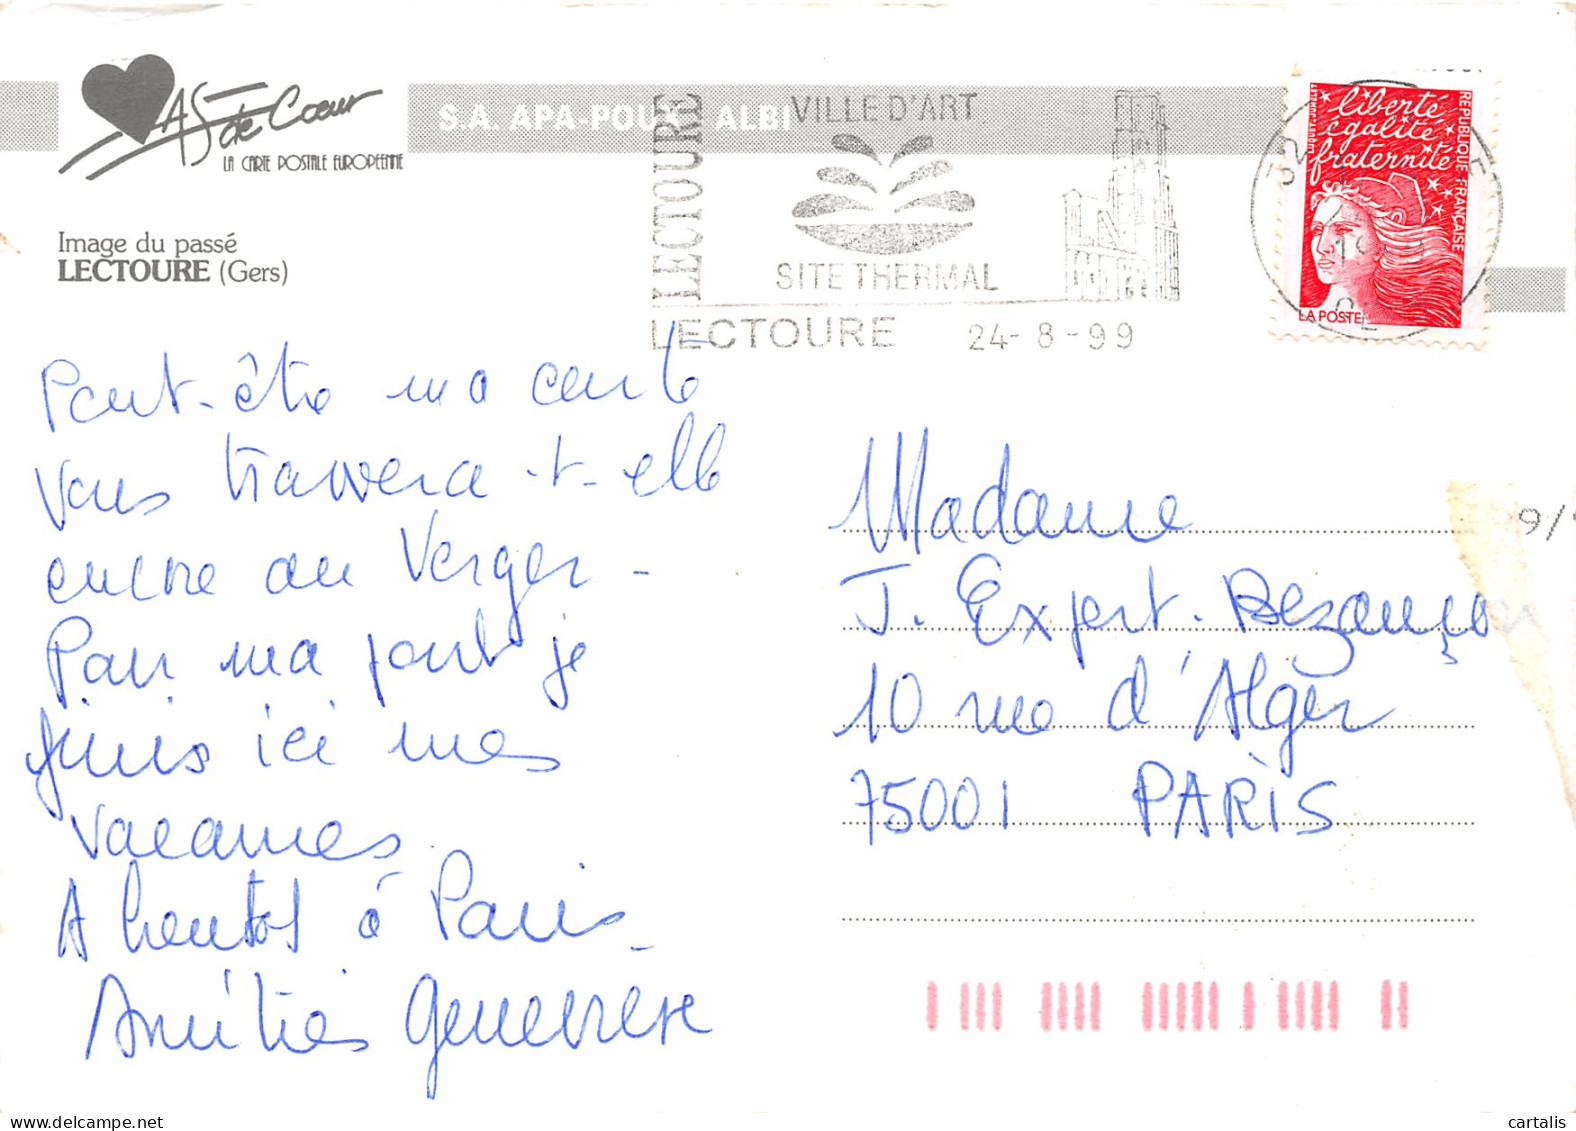 As de Cœur
LA CARTE POSTALE EUROPEENNE
S.A. APA-POUX ALBI
Image du passé
LECTOURE (Gers)
LECTOURE
VILLE D'ART
SITE THERMAL
LECTOURE 24-8-99
liberté
égalité
fraternité
REPUBLIQUE FRANÇAISE
LA POSTE
Peut-être ma carte
vous trouvera-t-elle
encore au Verger -
Pour ma part je
finis ici mes
vacances.
A bientôt à Paris -
Amitiés Geneviève
Madame
J. Expert-Bezançon
10 rue d'Alger
75001 PARIS
9/
cartalis